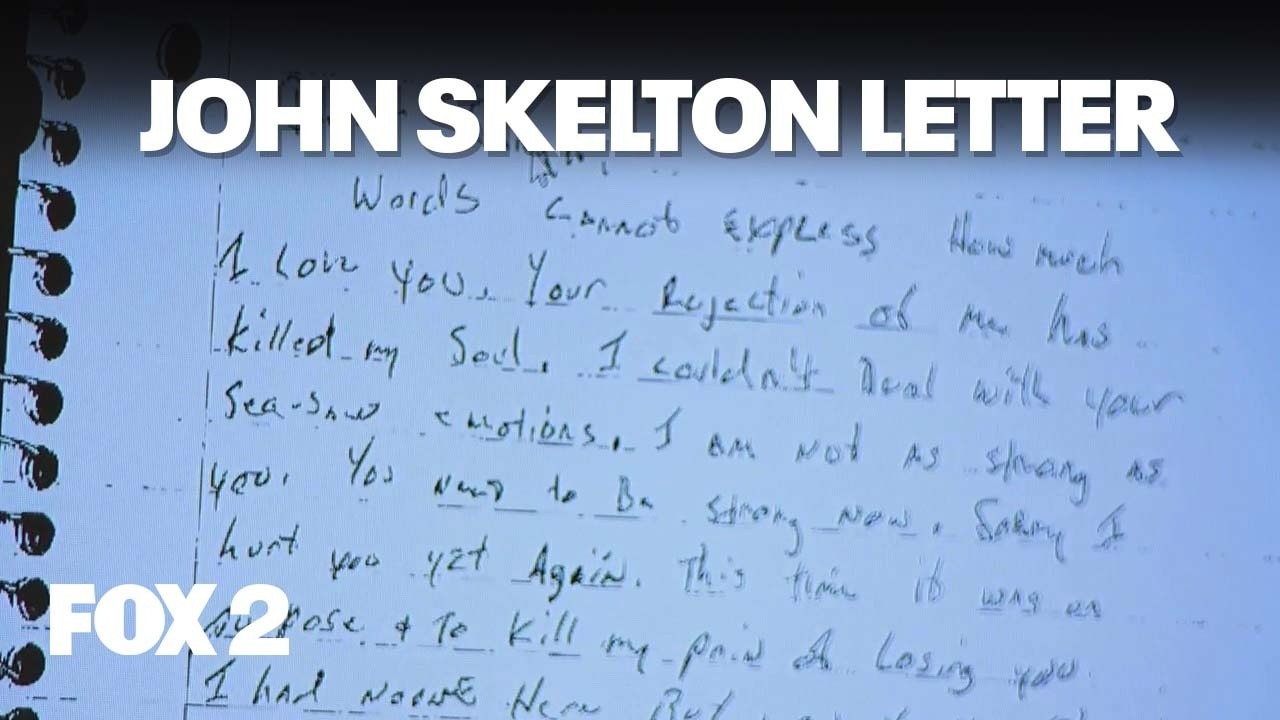 JOHN SKELTON LETTER
Words cannot express How much
I love you. Your Rejection of me has
killed my Soul. I couldn't Deal with your
Sea-Saw emotions. I am not as strong as
you. You need to Be strong now. Sorry I
hurt you yet Again. This time it was on
purpose & To Kill my pain of Losing you
I had noone Here But
FOX 2